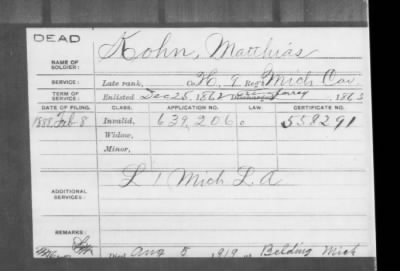 DEAD
NAME OF SOLDIER: Kohn, Matthias
SERVICE: Late rank, Co. H, 9. Reg't Mich Cav.
TERM OF SERVICE: Enlisted Dec 25, 1862 Discharged 1863
DATE OF FILING. CLASS. APPLICATION NO. LAW. CERTIFICATE NO.
1888 Feb 8 Invalid, 639,206 558291
Widow,
Minor,
ADDITIONAL SERVICES: L 1 Mich L. A
REMARKS:
Died Aug 5 1919 at Belding Mich